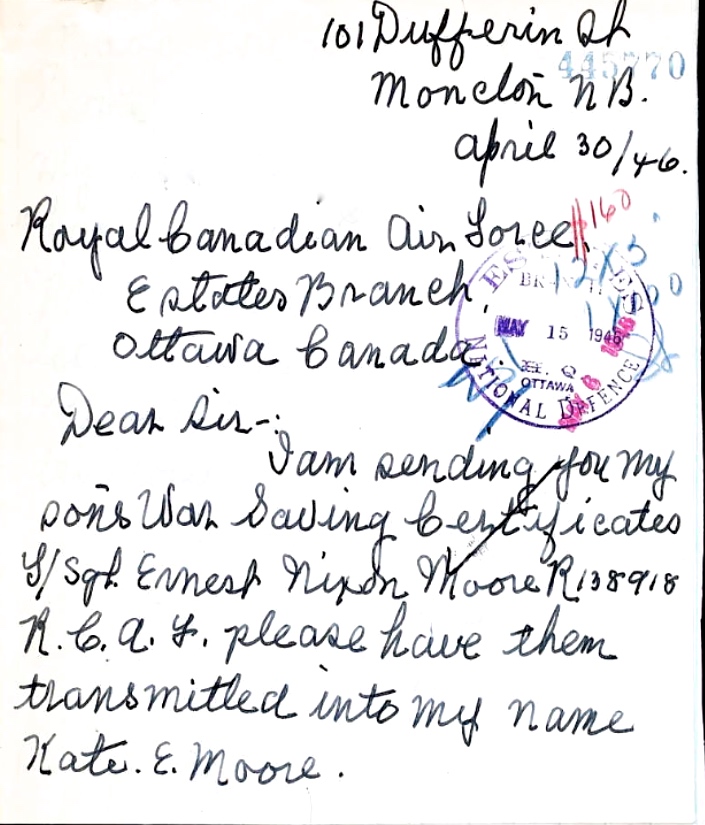 101 Dufferin St
445770
Moncton N B.
April 30/46.
Royal Canadian Air Force,
$160
Estates Branch,
Ottawa Canada.
ESTATES
BRANCH
MAY 15 1946
OTTAWA
NATIONAL DEFENCE
Dear Sir-:
I am sending you my
sons War Saving Certificates
F/Sgt. Ernest Nixon Moore R138918
R.C.A.F. please have them
transmitted into my name
Kate. E. Moore.